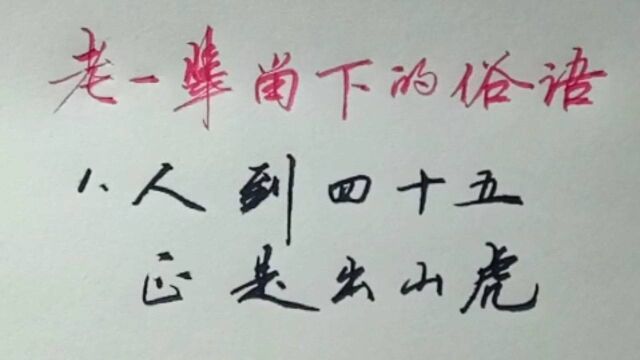 老一辈留下的俗语
1、人到四十五
正是出山虎